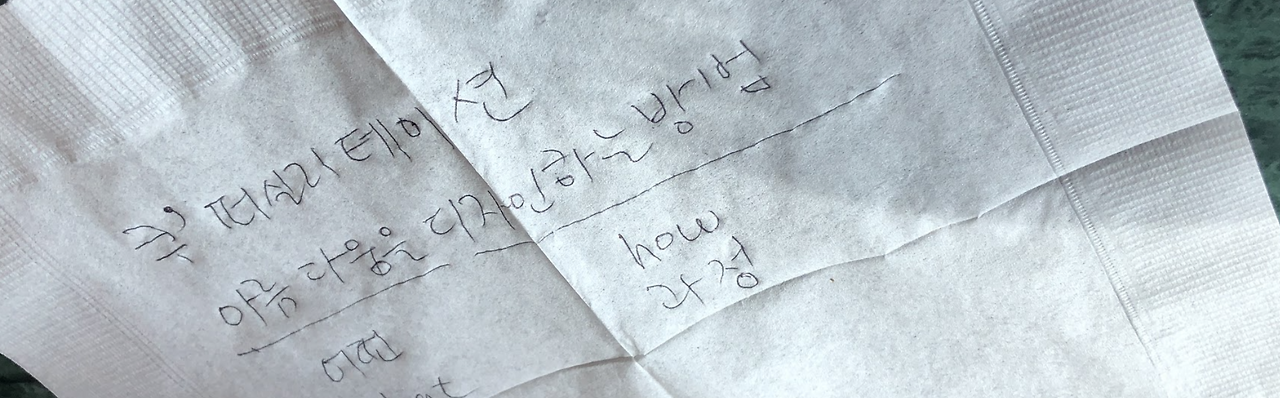 퍼실리테이션
아름다움을 디자인하는 방법
how
과정
어떤